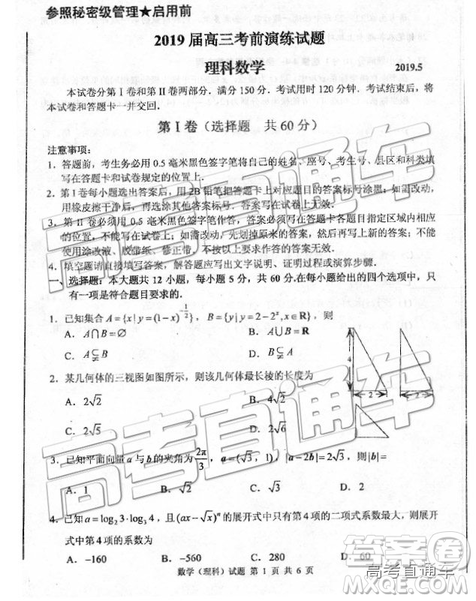 参照秘密级管理★启用前
2019 届高三考前演练试题
理科数学
2019.5
本试卷分第 I 卷和第 II 卷两部分．满分 150 分．考试用时 120 分钟．考试结束后，将
本试卷和答题卡一并交回．
第 I 卷（选择题 共 60 分）
注意事项：
1．答题前，考生务必用 0.5 毫米黑色签字笔将自己的姓名、座号、考生号、县区和科类填
写在答题卡和试卷规定的位置上．
2．第 I 卷每小题选出答案后，用 2B 铅笔把答题卡上对应题目的答案标号涂黑；如需改动，
用橡皮擦干净后，再选涂其他答案标号．
3．第 II 卷必须用 0.5 毫米黑色签字笔作答，答案必须写在答题卡各题目指定区域内相应
的位置，不能写在试卷上；如需改动，先划掉原来的答案，然后再写上新的答案；不能
使用涂改液、胶带纸、修正带．不按以上要求作答的答案无效．
4．填空题请直接填写答案，解答题应写出文字说明、证明过程或演算步骤．
一、选择题：本大题共 12 小题，每小题 5 分，共 60 分．在每小题给出的四个选项中，只
有一项是符合题目要求的．
1．已知集合 A={x|y=(1-x)^{-1/2}}，B={y|y=2-2^x,x∈R}，则
A．A∩B=∅ B．A∪B=R
C．A⊊B D．B⊊A
2．某几何体的三视图如图所示，则该几何体最长棱的长度为
A．2√2 B．4
C．2√5 D．2√6
4
2 2
3．已知平面向量 a 与 b 的夹角为 2π/3，
A．1 B．√3 C．2 D．√2
4．已知 a=log₂3·log₃4，且 (ax-√x)^n 的展开式中只有第 4 项的二项式系数最大，则第 4
项的系数为
A．-160 B．-560 C．280 D．60
数学（理科）试题 第 1 页 共 6 页
高考直通车
答案圈
高考直通车